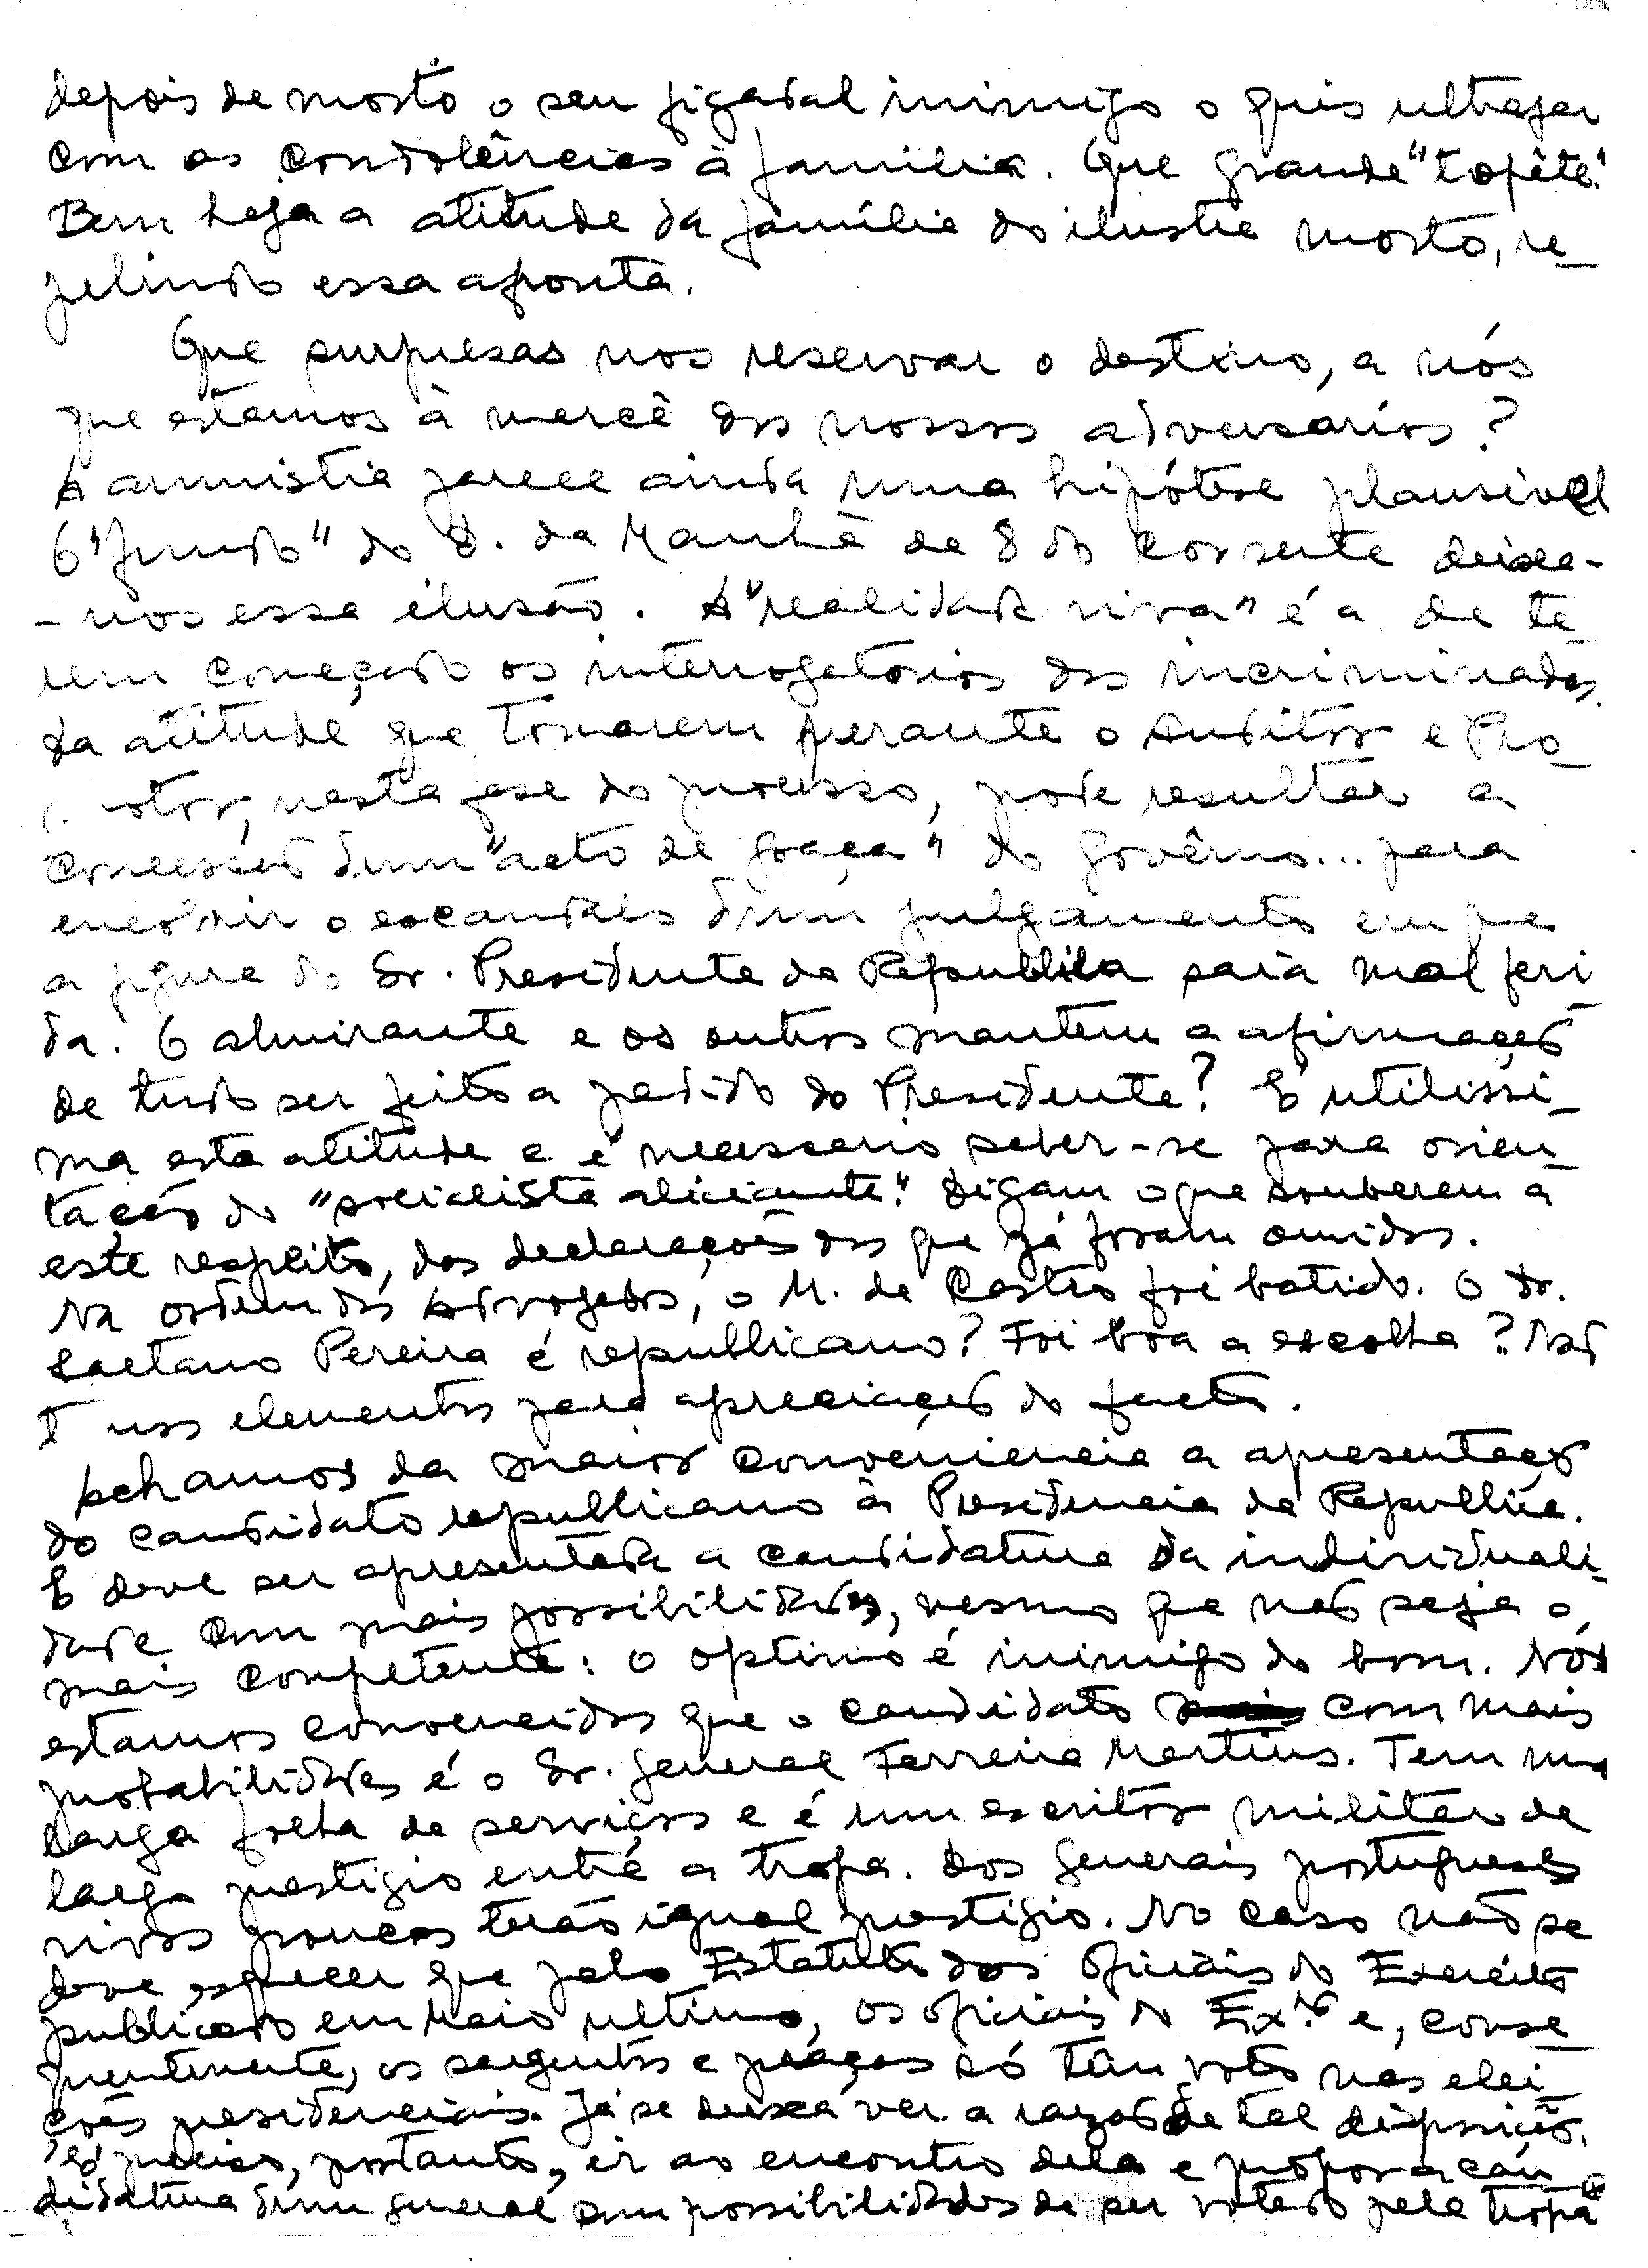 depois de morto o seu figadal inimigo o quis ultrajar
com as condolências à família. Que grande "topête".
Bem haja a atitude da família do ilustre morto, re-
pelindo essa afronta.
Que surpresas nos reservar o destino, a nós
que estamos à mercê dos nossos adversários?
A amnistia parece ainda uma hipótese plausivel
O "fundo" do D. da Manhã de 8 do corrente deixa-
-nos essa ilusão. A "realidade viva" é a de te-
rem começado os interrogatorios dos incriminados.
da atitude que tomarem perante o Auditor e Pro-
motor, nesta fase do processo, pode resultar a
concessão dum "acto de graça" do govêrno... para
encobrir o escandalo dum julgamento em que
a figura do Sr. Presidente da Republica saia mal feri
da. O almirante e os outros mantem a afirmação
de tudo ser feito a pedido do Presidente? É utilissi-
ma esta atitude e é necessario saber-se para orien-
tação do "socialista aliciante". Digam o que souberem a
este respeito, das declarações dos que já foram ouvidos.
Na ordem dos Advogados, o M. de Castro foi batido. O dr.
Caetano Pereira é republicano? Foi boa a escolha? Não
t nos elementos para apreciação do facto.
Achamos da maior conveniencia a apresentação
do candidato republicano à Presidencia da Republica.
E deve ser apresentada a candidatura da individuali-
dade com mais possibilidades, mesmo que não seja o
mais competente: o optimo é inimigo do bom. Nós
estamos convencidos que o candidato com mais
probabilidades é o Sr. general Ferreira Martins. Tem uma
larga folha de serviços e é um escritor militar de
largo prestigio entre a tropa. Dos generais portugueses
vivos poucos terão igual prestigio. No caso não se
deve esquecer que pelo Estatuto dos Oficiais do Exercito
publicado em Maio ultimo, os oficiais do Ex.to e, conse-
quentemente, os sargentos e praças só têm voto nas elei-
ções presidenciais. Já se deixa ver a razão de tal disposição.
É preciso, portanto, ir ao encontro dela e propor a can-
didatura dum general com possibilidades de ser votado pela tropa